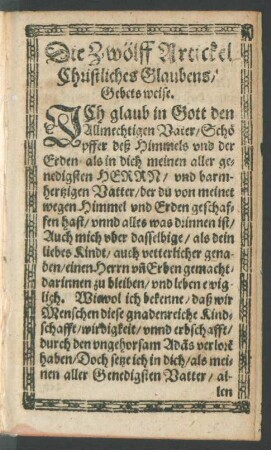 Die Zwölff Artickel
Christliches Glaubens/
Gebets weise.
ICh glaub in Gott den
Allmechtigen Vater/Schö
pffer deß Himmels vnd der
Erden/als in dich meinen aller ge-
nedigsten HERRN/ vnd barm-
hertzigen Vatter/der du von meinet
wegen Himmel vnd Erden geschaf-
fen hast/ vnnd alles was drinnen ist/
Auch mich vber dasselbige/als dein
liebes Kindt/ auch vetterlicher gena-
den/einen Herrn vñ Erben gemacht
darinnen zu bleiben/ vnd leben ewig
lich. Wiewol ich bekenne/ daß wir
Menschen diese gnadenreiche Kind-
schafft/ wirdigkeit/ vnnd erbschafft/
durch den vngehorsam Adās verlorē
haben/Doch setze ich in dich/als mei-
nen aller Genedigsten Vatter/ al-
len